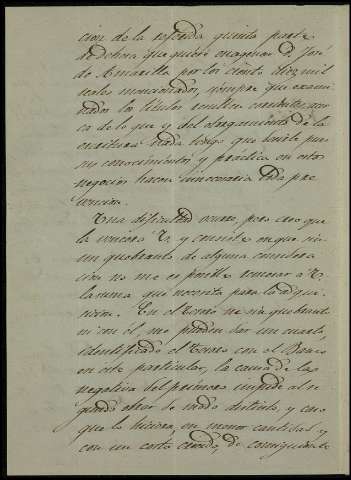 cion de la referida quinta parte
de dehesa que quiere enagenar D. José
de Amarilla por los ciento diez mil
reales mencionados, siempre que exami
nados los titulos resulten
ca de lo que y del otorgamiento de la
escritura nada tengo que decirle pues
sus conocimientos y practica en estos
negocios hacen innecesaria toda pre
vencion.
Una dificultad ocurre, pero creo que
la vencerá V. y consiste en que sin
un quebranto de alguna considera
cion no me es posible remesar á V.
la suma que necesita para la adqui
sicion. En el Tesoro ne sin quebranto
ni con él, me pueden dar un cuarto,
identificado el Tesoro con el Banco
en este particular, la causa de las
negativas del primero impide al se
gundo obrar de modo distinto, y caso
que lo hiciera, en menor cantidad y
con un costo crecido, de consiguiente